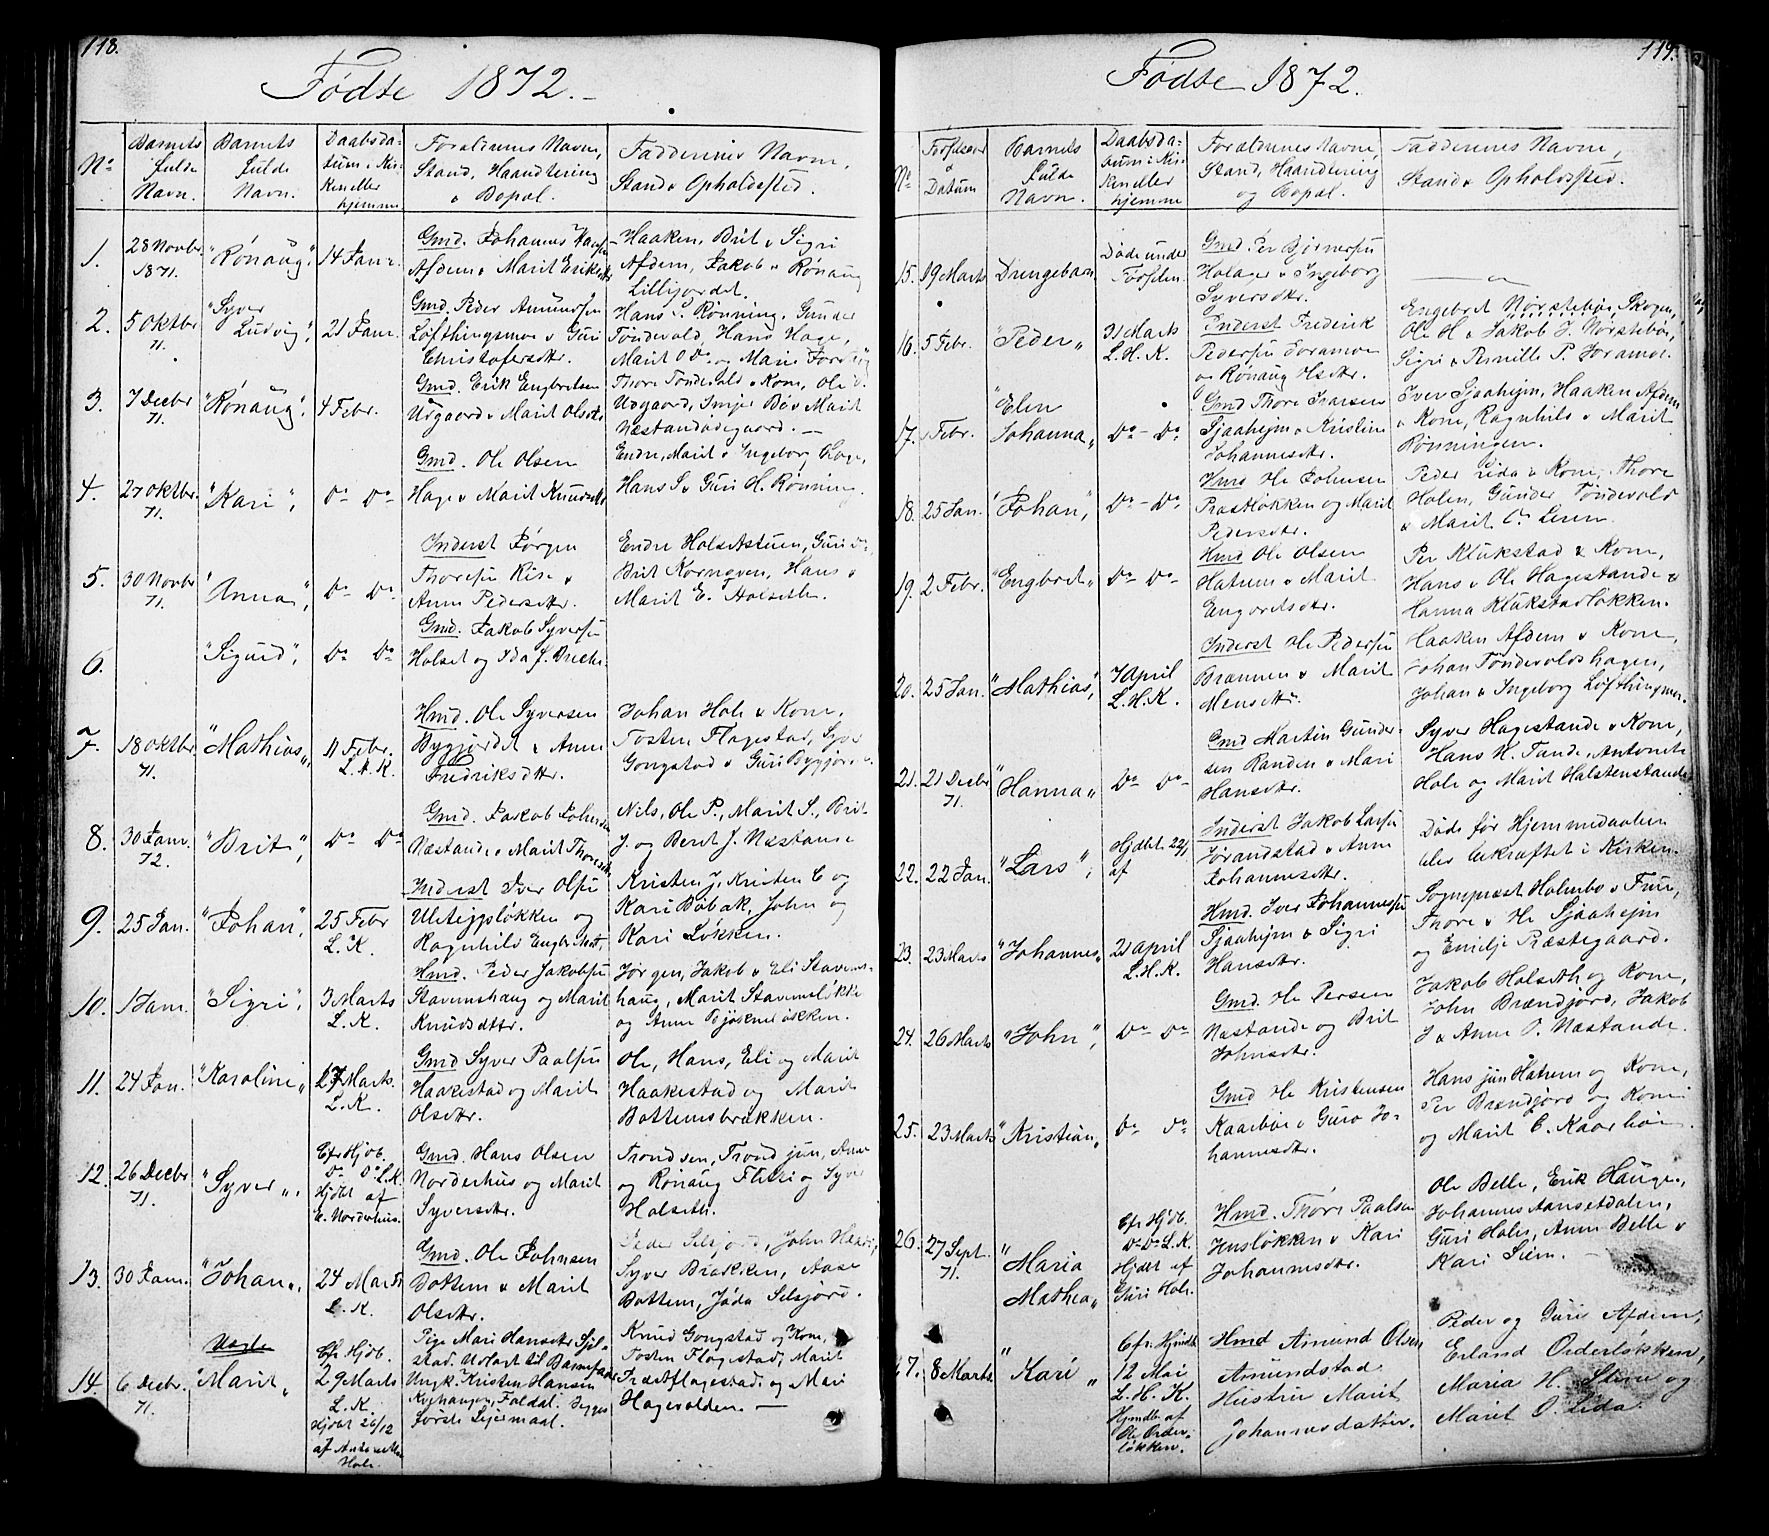 118.
Fødte 1872.
No
Barnets fulde Navn.
Barnets fulde Navn.
Daabsdatum i Kirken eller hjemme
Forældrenes Navne, Stand, Haandtering & Bopæl.
Faddernes Navne, Stand & Opholdssted.
1.
28 Novbr 1871.
"Rønaug".
14 Janr.
Gmd. Johannes
Afdem & Marit Eriksdtr
Haaken, Brit & Sigri
Afdem, Jakob & Rønaug
Lillijordet.
2.
5 Oktbr 71.
"Syver Ludvig".
21 Janr.
Gmd. Peder Amundsen
Løfthingsmoe & Guri
Christofersdtr.
Hans S. Rønning, Gunder
Tøndevold, Hans Hage,
Marit O Do. og Mari
3.
7 Decbr 71.
"Rønaug".
4 Febr.
Gmd. Erik Engebretsen
Udgaard & Marit Olsdtr
Thore Tøndevold & Kone, Ole
Udgaard, Bø & Marit
Næstandødegaard.
4.
27 Oktbr. 71.
"Kari",
Do Do
Gmd. Ole Olsen
Hage & Marit Knudsdtr
Endre, Marit & Ingeborg Hage,
Hans S & Guri H. Rønning.
5.
30 Novbr 71.
"Anna",
Do Do
Inderst Jørgen
Thoresen Rise &
Anne Pedersdtr.
Endre Holsetstuen, Guri Do,
Brit Kornoven, Hans &
Marit E. Holseth.
6.
"Sigurd",
Do Do
Gmd. Jakob Syversen
Holset og Ida J.
7.
18 Oktbr 71.
"Mathias",
11 Febr. L. K.
Hmd. Ole Syversen
Byggjordet & Anne
Fredriksdtr.
Johan Hole & Kone,
Tosten Flagestad, Syver
Gongstad & Guri Byggjordet.
8.
30 Janr. 72.
"Brit",
Do Do
Gmd. Jakob Johnsen
Næstande & Marit Thoresdtr
Nils, Ole P., Marit S., Brit
J. og Berit J. Næstande
9.
25 Jan.
"Johan",
25 Febr L. K.
Inderst Iver Olsen
Uleigsløkken og
Ragnhild Engebretsdtr.
Kristen J, Kristen E og
Kari Bøbak, John og
Kari Løkken.
10.
1 Jan.
"Sigri",
3 Marts L. K.
Hmd. Peder Jakobsen
Stavemshaug og Marit
Knudsdtr.
Jørgen, Jakob & Eli Stavems-
haug, Marit Stavemsløkke
og Anne Bjøkneløkken.
11.
24 Jan.
"Karoline"
27 Marts. L. K.
Gmd Syver Paalsen
Haakestad og Marit
Olsdtr.
Ole, Hans, Eli og Marit
Haakestad og Marit
Bottemsbrækken.
12.
26 Decbr 71.
"Syver",
Cfr Hjdb.
Do Do L. K.
Hjdbt af
E. Norderhus.
Gmd. Hans Olsen
Norderhus og Marit
Syversdtr.
Trond sen, Trond jun, Anne
og Rønaug Flitti og Syver
Holseth.
13.
30 Jan.
"Johan",
24 Marts L. K.
Gmd. Ole Johnsen
Bottem & Marit
Olsdtr.
Peder Selsjord, John
Syver Brækken, Aase
Bottem, Jøda Selsjord.
14.
6 Decbr. 71.
Uægte
"Marit"
Cfr Hjdb.
29 Marts
L. K.
Hjdbt 26/12
af
Hole.
Pige Mari Hansdtr
stad. Udlagt til Barnefader
Ungk. Kristen Hansen
Foldal. Begges
første Leiermaal.
Knud Gongstad og Kone,
Tosten Flagestad, Marit
Træetflagestad og Mari
Hagevolden.
119.
Fødte 1872.
No
Fødselsaar & Datum
Barnets fulde Navn.
Daabsdatum i Kirken eller hjemme
Forældrenes Navne, Stand, Haandtering og Bopæl.
Faddernes Navne, Stand & Opholdssted.
15.
19 Marts
Drengebarn
Døde under Fødslen.
Gmd. Per Bjørnersen
Holager & Ingeborg
Syversdtr.
16.
5 Febr.
"Peder"
31 Marts L. H. K.
Inderst Frederik
Pedersen Joramoe
& Rønaug Olsdtr.
Engebret Nørstebø, Skogen,
Ole H & Jakob J. Nørstebø,
Sigri & Pernille P. Joramoe.
17.
Febr.
"Elen Johanna"
Do - Do
Gmd Thore Ivarsen
Sjaahejm & Kristine
Johannesdtr.
Iver Sjaahejm, Haaken Afdem
& Kone, Ragnhild & Marit
Rønningen.
18.
25 Jan.
"Johan",
Do - Do
Hmd Ole Johnsen
Præstløkken og Marit
Pedersdtr.
Peder Lida & Kone, Thore
Holen, Gunder Tøndevold
& Marit O.
19.
2 Febr.
"Engbret"
Do Do
Hmd Ole Olsen
Hatrem & Marit
Engbretsdtr.
Per Klukstad & Kone,
Hans & Ole Hagestande &
Hanna Klukstadløkken.
20.
25 Jan.
"Mathias",
7 April L. H. K.
Inderst Ole Pedersen
Brænnen & Marit
Monsdtr.
Haaken Afdem & Kone,
Johan Tøndevoldshagen,
Johan & Ingeborg Løfthingsmoe.
21.
21 Decbr 71.
"Hanna"
Do Do
Gmd Martin Gunder-
sen Randen & Mari
Hansdtr.
Syver Hagestande & Kone,
Hans H. Tande, Antonette
Hole og Marit Holstenstande.
22.
22 Jan.
"Lars",
Hjdbt 22/1 af
Inderst Jakob Larsen
Jørandstad & Anne
Johannesdtr.
Døde før Hjemmedaaben
blev bekræftet i Kirken.
23.
23 Marts
"Johannes"
21 April L. H. K.
Hmd. Iver Johannesen
Sjaahejm & Sigri
Hansdtr.
Sognepræst Holmbo & Frue,
Thore & Ole Sjaahejm
og Emilje Præstegaard.
24.
26 Marts
"John",
Do Do
Gmd. Ole Persen
Næstande og Brit
Johnsdtr.
Jakob Holseth og Kone,
John Brændjord, Jakob
J & Anne O. Næstande.
25.
23 Marts
"Kristian"
Do Do
Gmd Ole Kristensen
Kaarbøe & Guro Jo-
hannesdtr.
Hans jun Hatrem og Kone,
Per Brændjord og Kone
og Marit C. Kaarbøe.
26.
27 Sept. 71.
"Maria Mathea"
Cfr Hjdb.
Do Do L. K.
Hjdbt af
Guri Hole.
Hmd. Thore Paalsen
Husløkken & Kari
Johannesdtr.
Ole Belle, Erik Hauge,
Johannes Aansetdalen,
Guri Hole, Anne Belle &
Kari Siem.
27.
8 Marts.
"Kari"
Cfr. Hjmdb.
12 Mai
L. H. K.
Hjmdb. af
Ole Order-
løkken.
Hmd Amund Olsen
Amundstad
Hustru Marit
Johannesdatter.
Peder og Guri Afdem,
Erland Orderløkken,
Maria H. Stene og
Marit O. Lida.